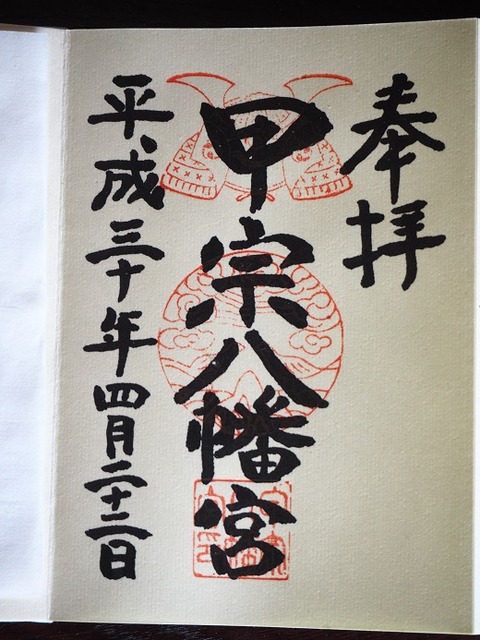 奉拝
甲宗八幡宮
平成三十年四月二十二日